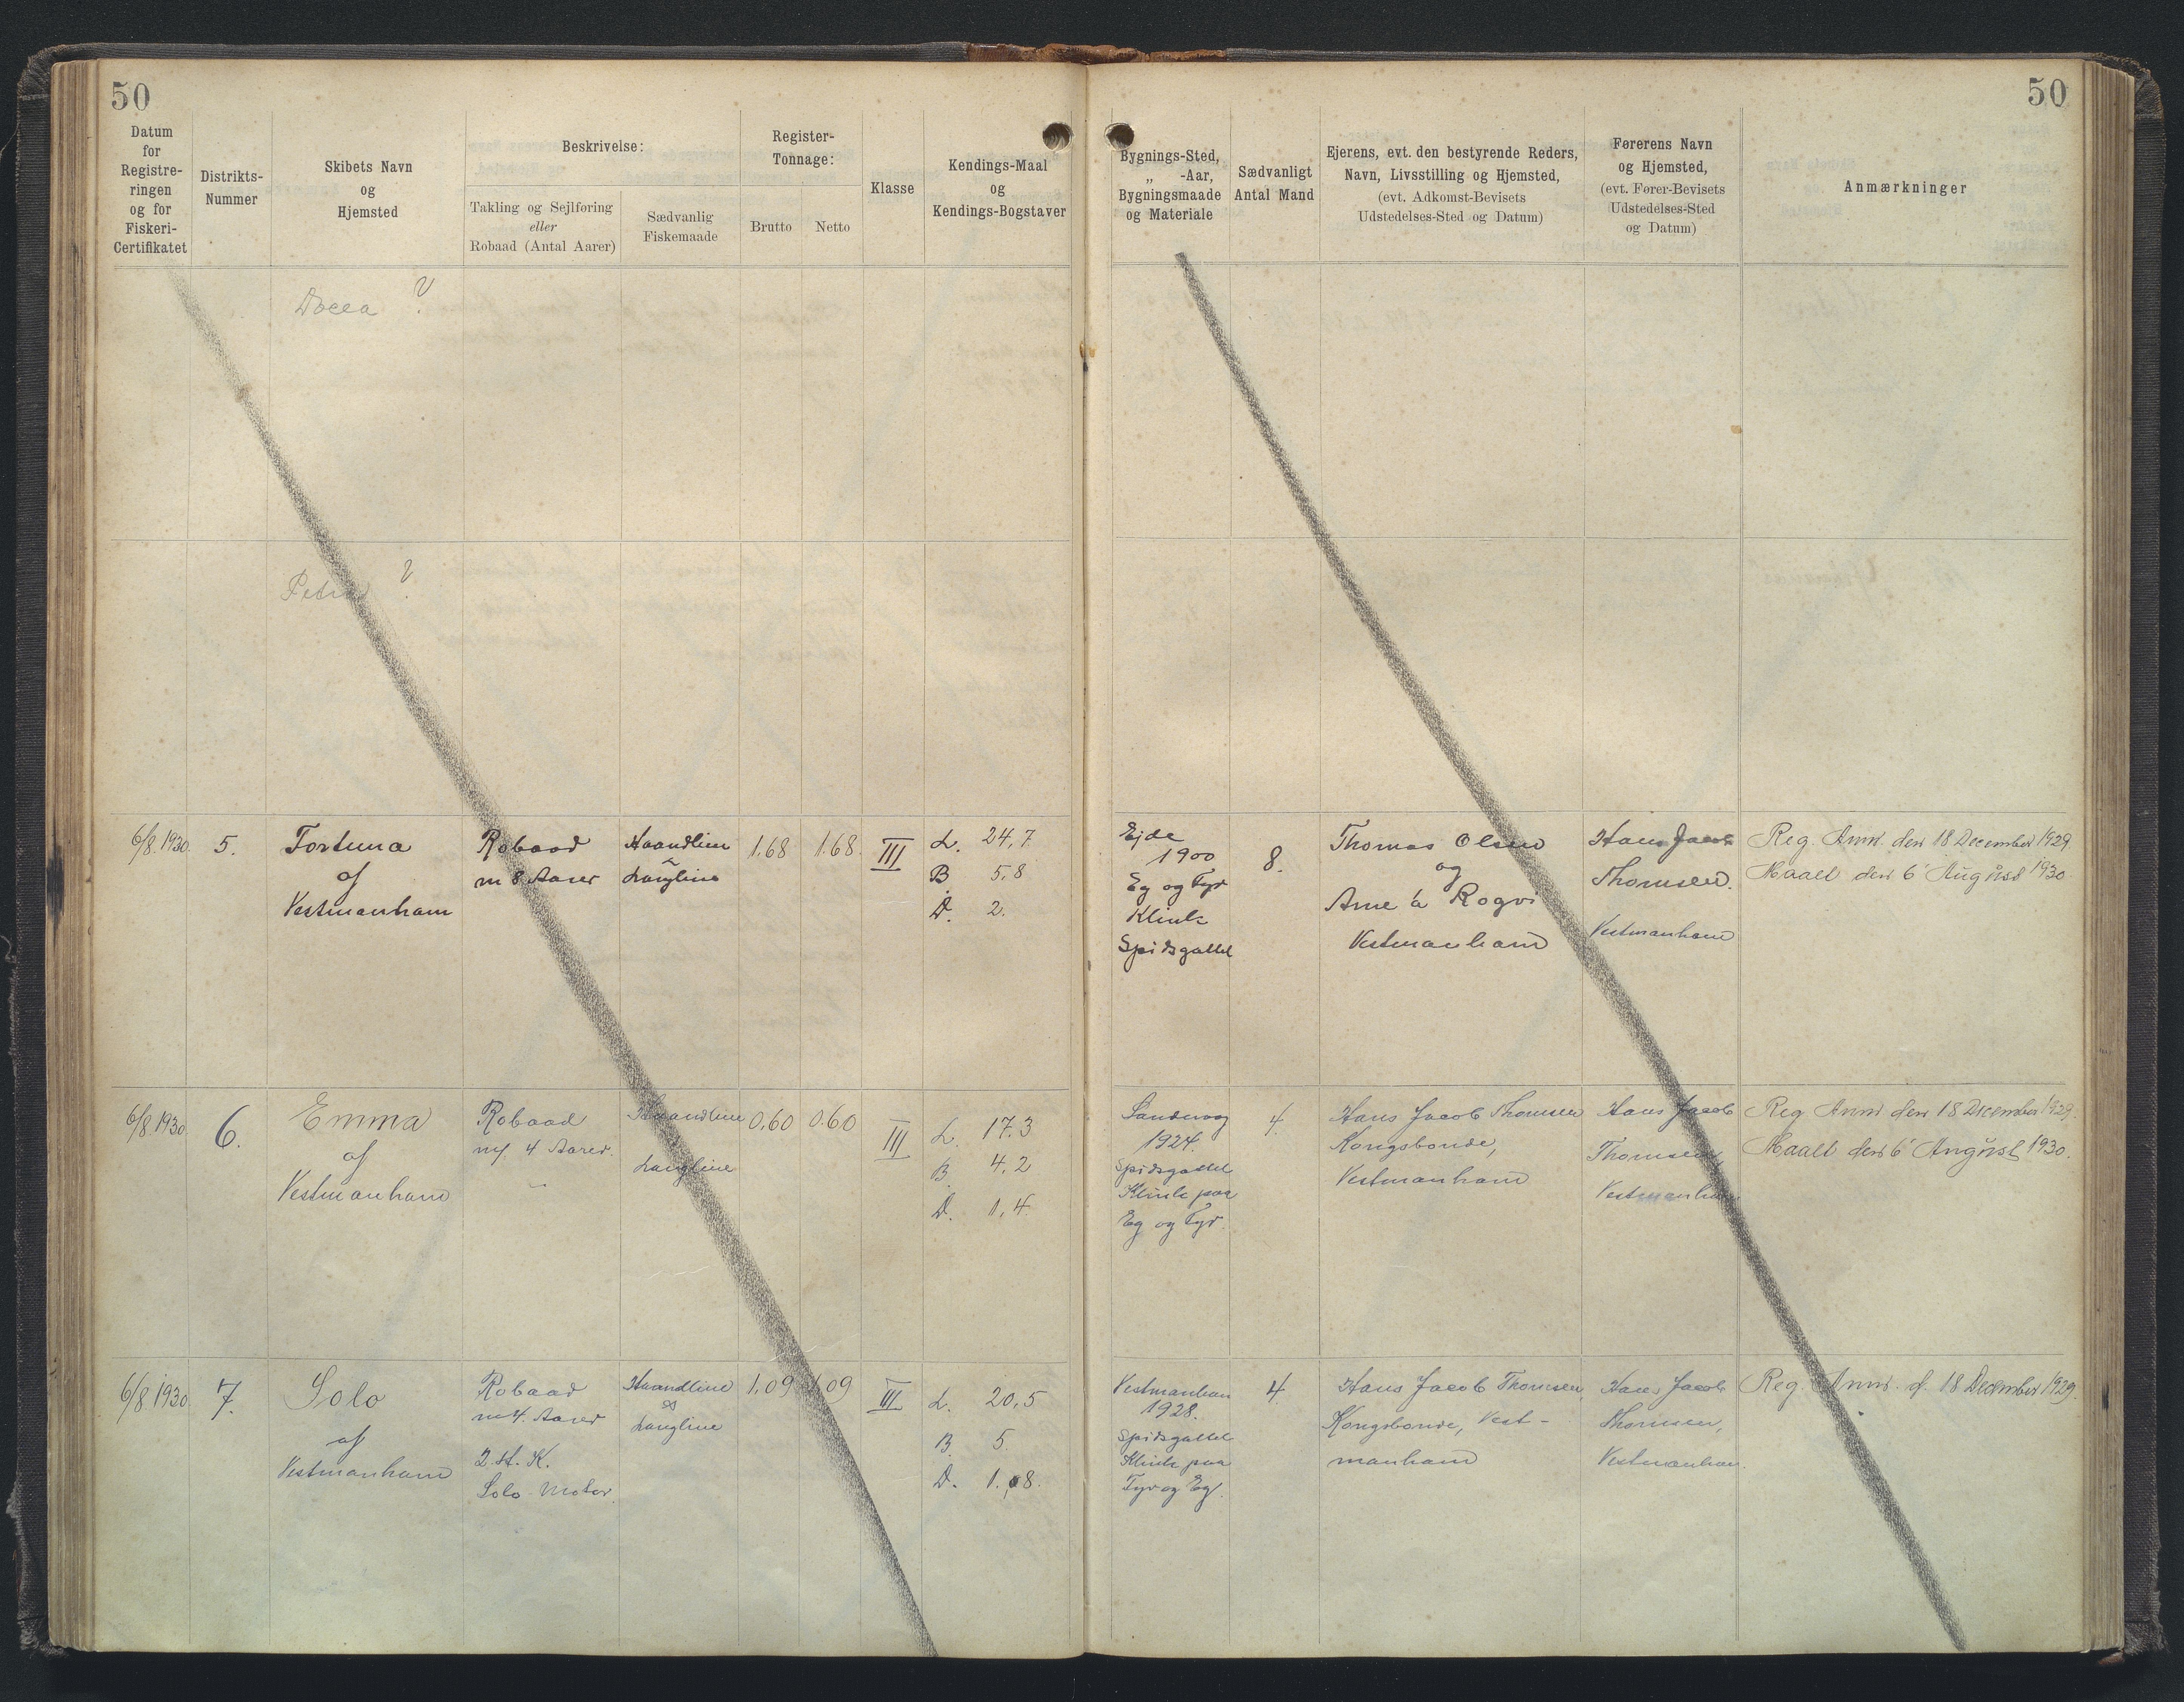 50
50
Datum
for
Registre-
ringen
og for
Fiskeri-
Certifikatet
Distrikts-
Nummer
Skibets Navn
og
Hjemsted
Beskrivelse:
Takling og Sejlføring
eller
Robaad (Antal Aarer)
Sædvanlig
Fiskemaade
Register-
Tonnage:
Brutto
Netto
Klasse
Kendings-Maal
og
Kendings-Bogstaver
Bygnings-Sted,
„ -Aar,
Bygningsmaade
og Materiale
Sædvanligt
Antal Mand
Ejerens, evt. den bestyrende Reders,
Navn, Livsstilling og Hjemsted,
(evt. Adkomst-Bevisets
Udstedelses-Sted og Datum)
Førerens Navn
og Hjemsted,
(evt. Fører-Bevisets
Udstedelses-Sted
og Datum)
Anmærkninger
?
Petra ?
6/8.1930.
5.
Fortuna
af
Vestmanhavn
Robaad
m 8 Aarer
Haandline
Langline
1.68
1.68.
III
L. 24,7
B 5,8
D. 2.
Ejde
1900
Eg og Fyr
Klink
Spidsgattet
8.
Thomas Olsen
og
Arne á Rogvi
Vestmanhavn
Hans Jacob
Thomsen.
Vestmanhavn
Reg. Anm. den 18 December 1929
Maalt den 6' August 1930.
6/8.1930.
6.
Emma
af
Vestmanhavn
Robaad
m/ 4 Aarer.
Haandline
Langline
0,60
0.60
III
L. 17.3
B. 4,2
D. 1,4
Sandevog
1924.
Spidsgattet
Klink paa
Eg og Fyr.
4.
Hans Jacob Thomsen
Kongsbonde,
Vestmanhavn
Hans Jacob
Thomsen,
Vestmanhavn
Reg Anm den 18 December 1929.
Maalt den 6' August 1930.
6/8 1930.
7.
Solo
af
Vestmanhavn
Robaad
m 4. Aarer
2 H. K.
Solo Motor.
Haandline
og
Langline
1,09
1,09
III
L. 20,5
B. 5.
D. 1.,8.
Vestmanhavn
1928.
Spidsgattet
Klink paa
Fyr og Eg.
4.
Hans Jacob Thomsen
Kongsbonde, Vest-
manhavn
Hans Jacob
Thomsen,
Vestmanhavn.
Reg. Anm. d. 18 December 1929.